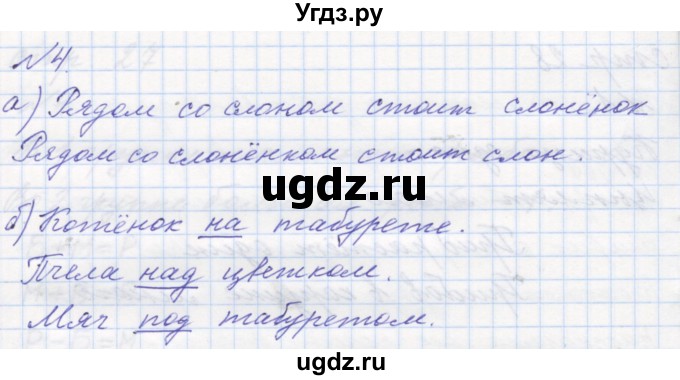 Угдз.ру
№4.
а) Рядом со слоном стоит слонёнок
Рядом со слонёнком стоит слон.
ugdz.ru
б) Котёнок на табурете.
Пчела над цветком.
Мяч под табуретом.
ugdz.ru